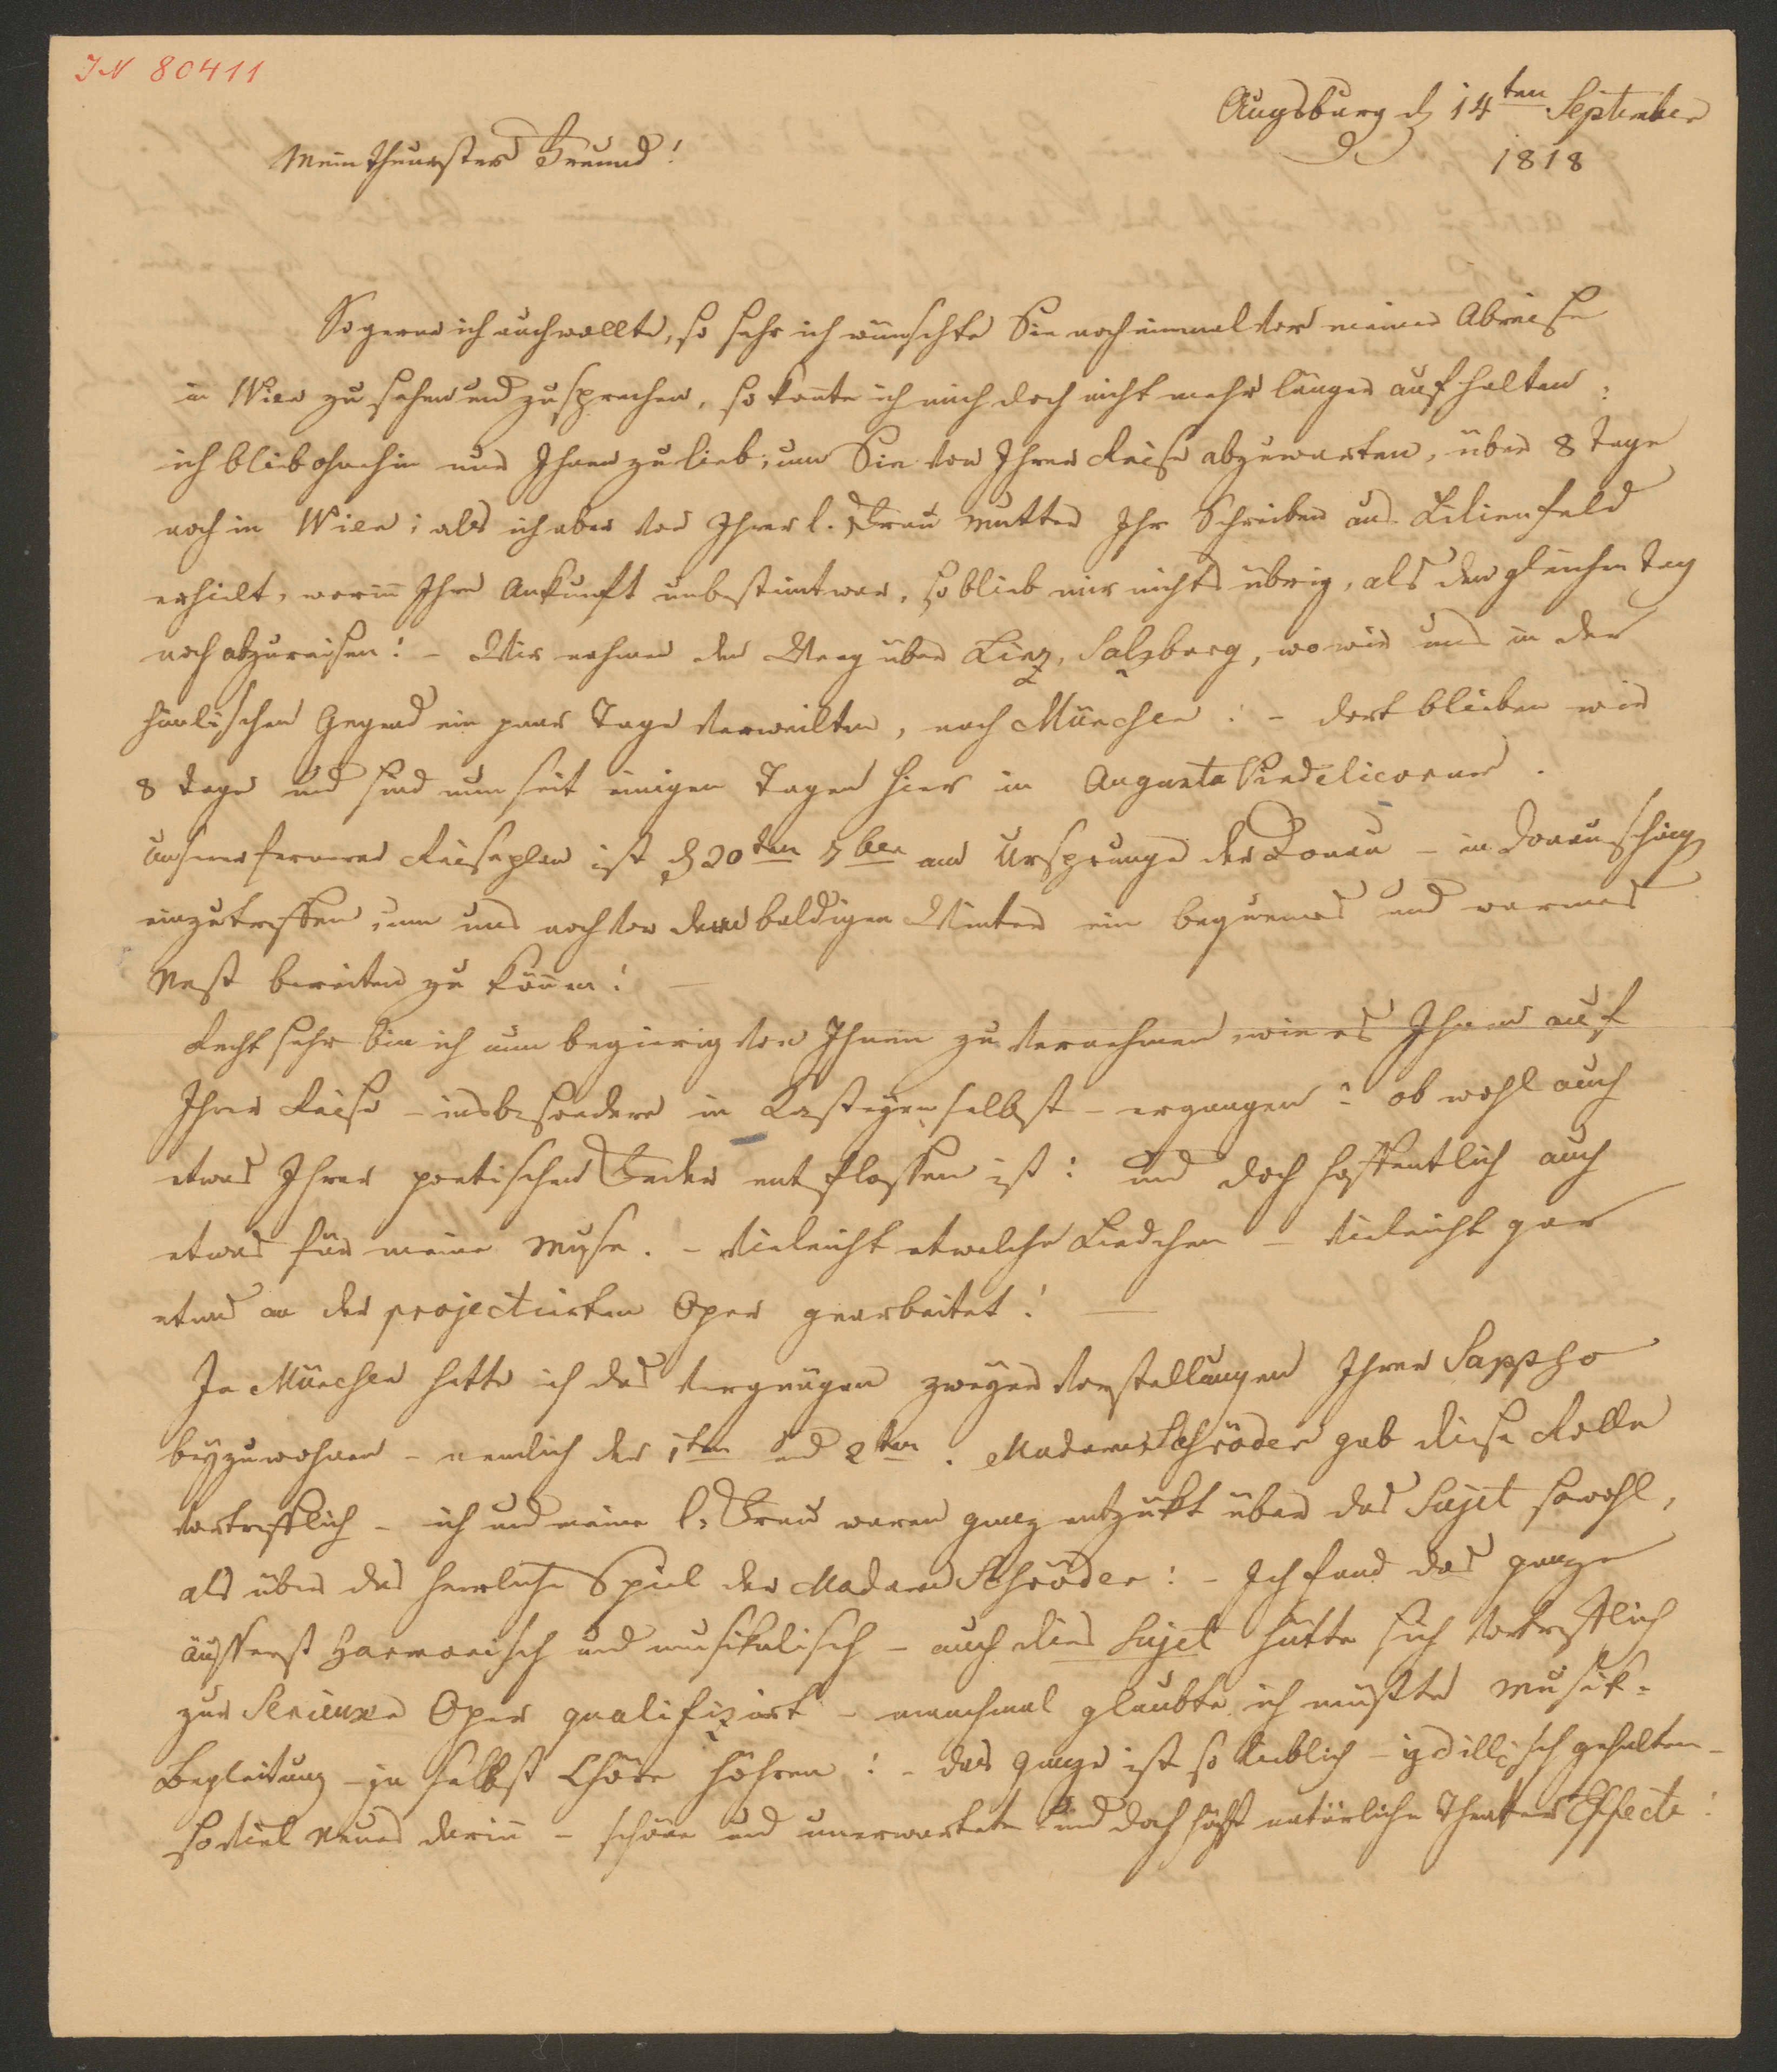 IN 80411
Augsburg d 14ten September
1818
Mein theuerster Freund!
So gerne ich auch wollte, so sehr ich wünschte Sie noch einmal vor meiner Abreise
in Wien zu sehen und zu sprechen, so konte ich mich doch nicht mehr länger aufhalten:
ich blieb ohnehin nur Ihnen zu lieb, um Sie von Ihrer Reise abzuwarten, über 8 Tage
noch in Wien; als ich aber von Ihrer l. Frau Mutter Ihr Schreiben aus Lilienfeld
erhielt, worin Ihre Ankunft unbestimt war, so blieb mir nichts übrig, als den gleichen Tag
noch abzureisen: – Wir nahmen den Weeg über Linz, Salzburg, wo wir uns in der
himlischen Gegend ein paar Tage verweilten, nach München: – dort blieben wir
8 Tage und sind nun seit einigen Tagen hier in Augusta Vindelicorum.
Unser fernerer Reiseplan ist d 20ten 7ber am Ursprunge der Donau – in Donauschingen
einzutreffen, um uns noch vor dem baldigen Winter ein bequemes und warmes
Nest bereiten zu können! –
Recht sehr bin ich nun begierig von Ihnen zu vernehmen, wie es Ihnen auf
Ihrer Reise – insbesondere in Gasteyn selbst – ergangen? ob wohl auch
etwas Ihrer poetischen Feder entflossen ist: und doch hoffentlich auch
etwas für meine Muse. – vieleicht etwelche Liedchen – vieleicht gar
etwas an der projectirten Oper gearbeitet! –
In München hatte ich das Vergnügen zweyen Vorstellungen Ihrer Sappho
beyzuwohnen – nemlich der 1ten und 2ten. Madame Schröder gab diese Rolle
vortrefflich – ich und meine l. Frau waren ganz entzükt über das Sujet sowohl,
als über das herrliche Spiel der Madame Schröder: – Ich fand das ganze
äusserst harmonisch und musikalisch – auch dies Sujet hätte sich vortrefflich
zur Serieuxen Oper qualifizirt – manchmal glaubte ich müßte Musik-
Begleitung – ja selbst Chöre höhren: – das ganze ist so lieblich – ydillisch gehalten –
so viel Neues darin – schöne und unerwartete und doch höchst natürliche Theater Effecte!